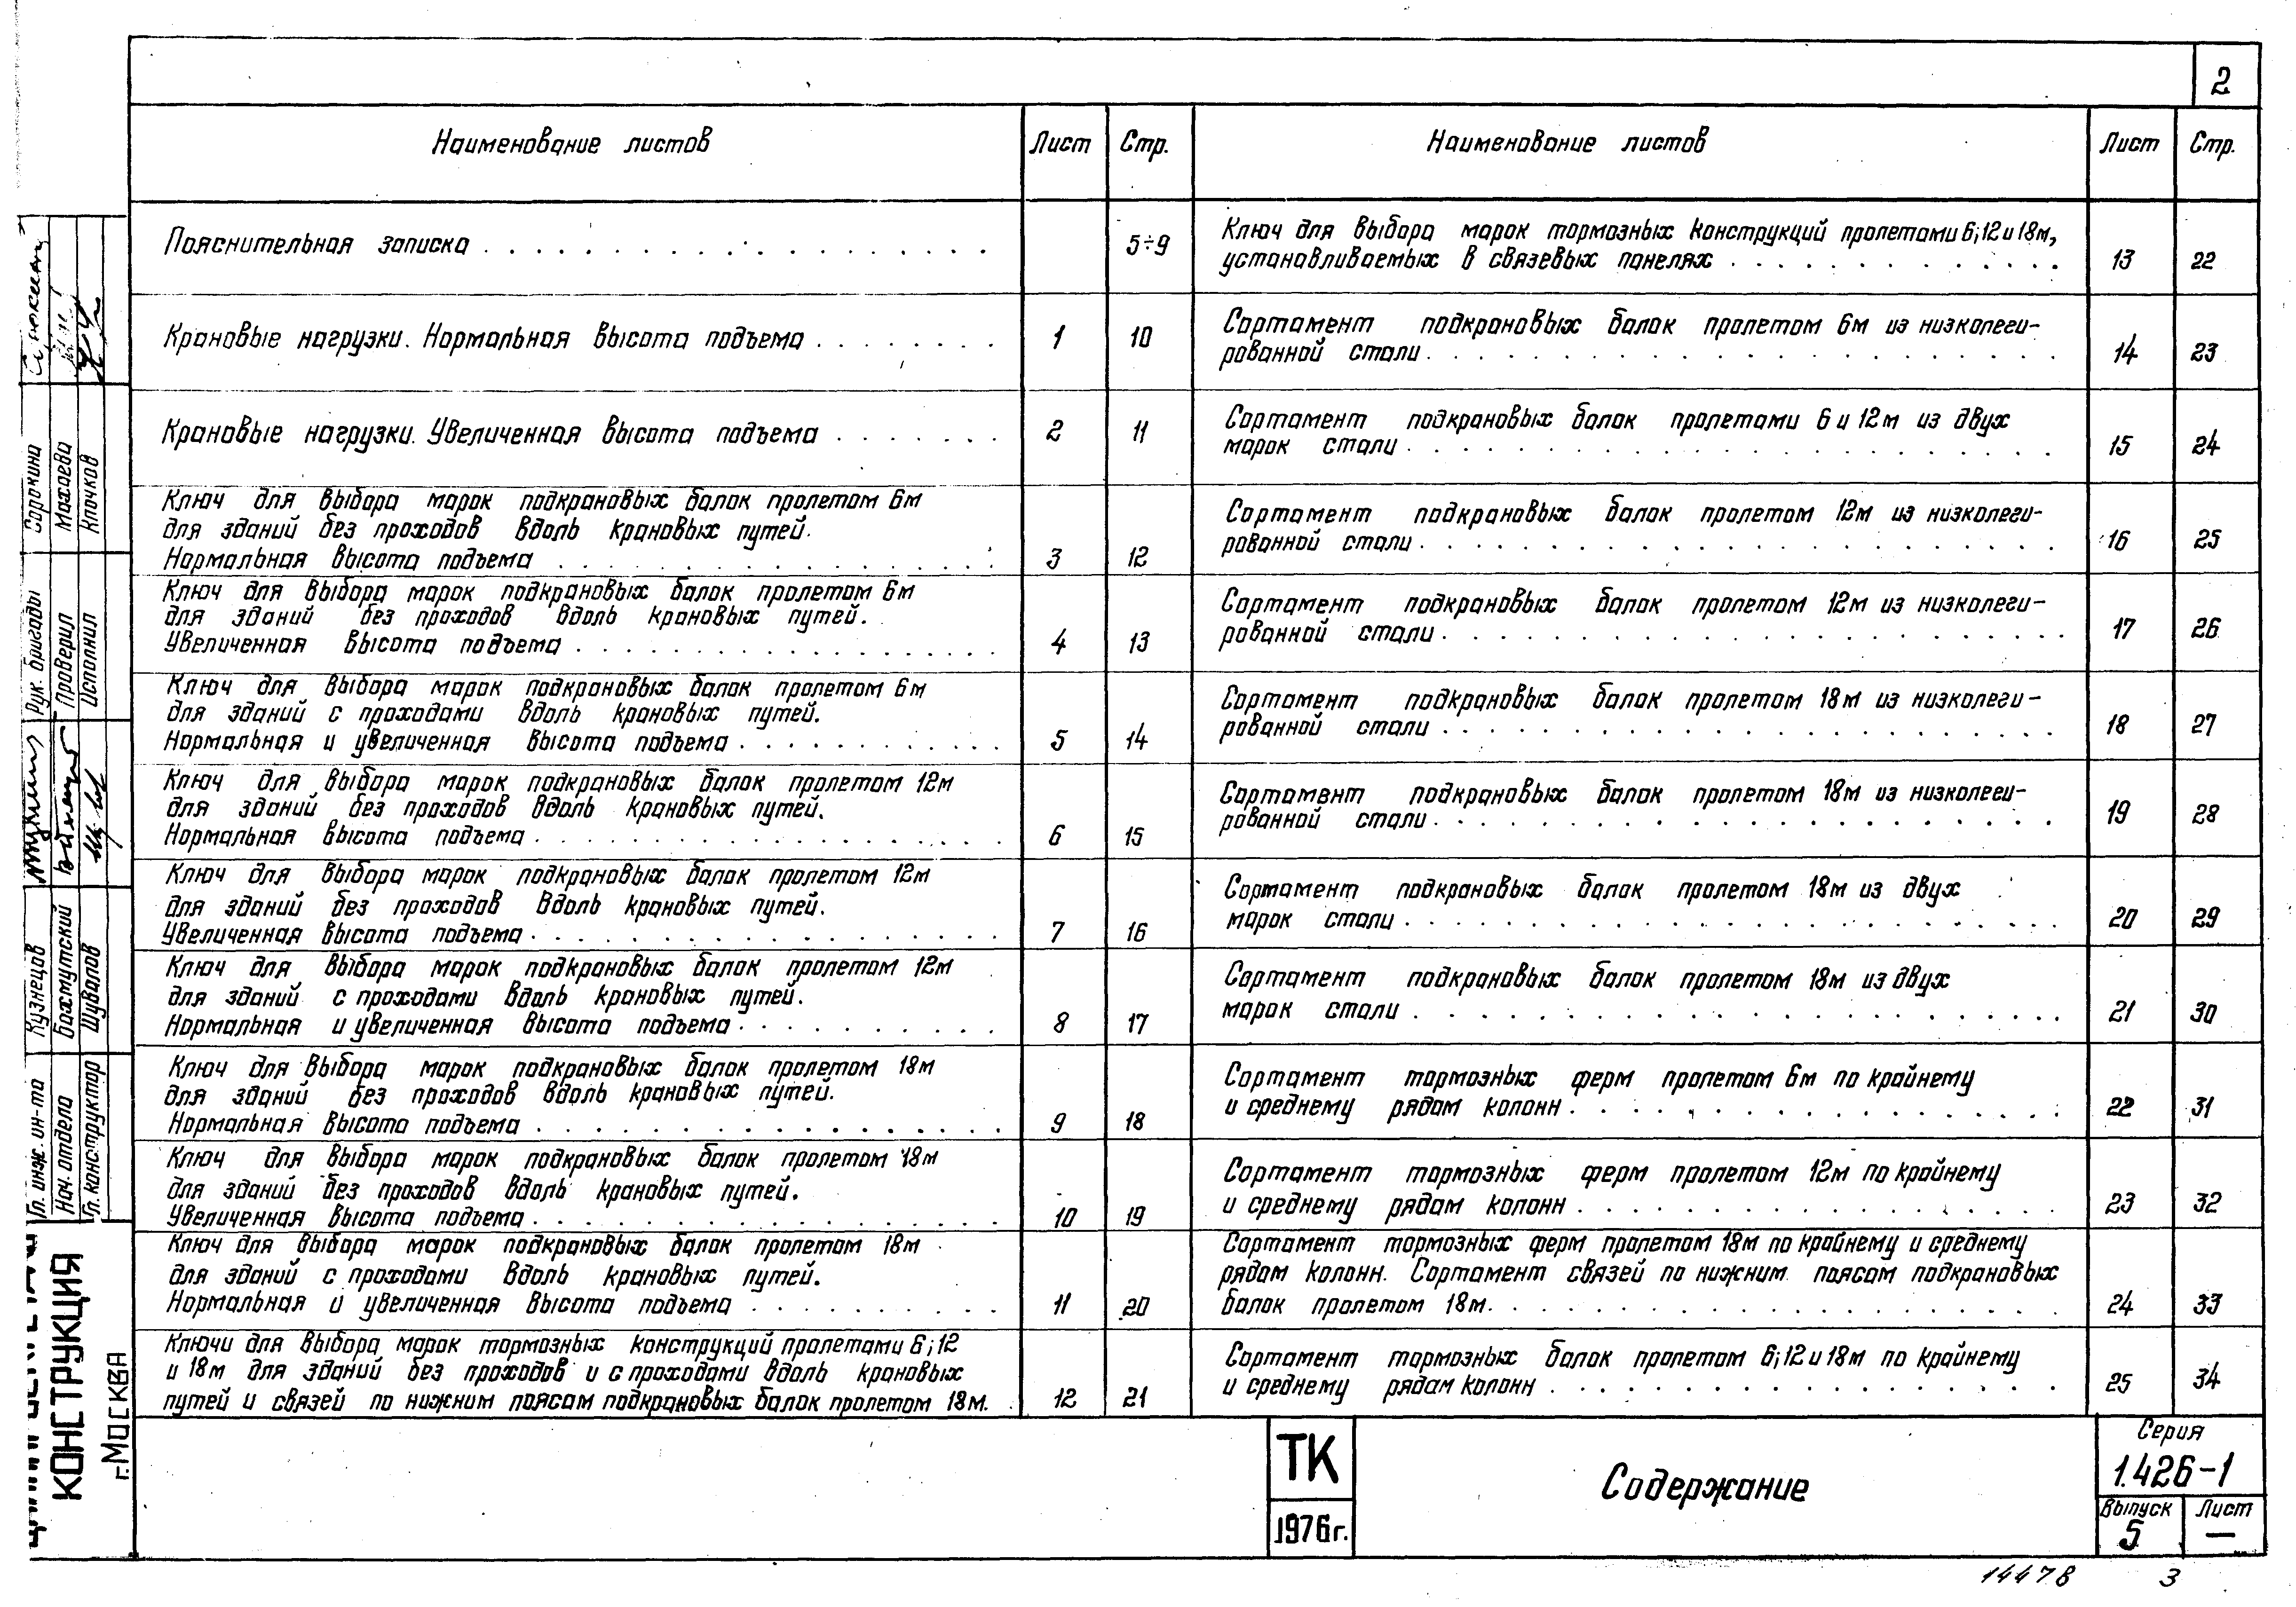 2
Наименование листов
Лист
Стр.
Пояснительная записка
5÷9
Крановые нагрузки. Нормальная высота подъема
1
10
Крановые нагрузки. Увеличенная высота подъема
2
11
Ключ для выбора марок подкрановых балок пролетом 6м
для зданий без проходов вдоль крановых путей.
Нормальная высота подъема
3
12
Ключ для выбора марок подкрановых балок пролетом 6м
для зданий без проходов вдоль крановых путей.
Увеличенная высота подъема
4
13
Ключ для выбора марок подкрановых балок пролетом 6м
для зданий с проходами вдоль крановых путей.
Нормальная и увеличенная высота подъема
5
14
Ключ для выбора марок подкрановых балок пролетом 12м
для зданий без проходов вдоль крановых путей.
Нормальная высота подъема
6
15
Ключ для выбора марок подкрановых балок пролетом 12м
для зданий без проходов вдоль крановых путей.
Увеличенная высота подъема
7
16
Ключ для выбора марок подкрановых балок пролетом 12м
для зданий с проходами вдоль крановых путей.
Нормальная и увеличенная высота подъема
8
17
Ключ для выбора марок подкрановых балок пролетом 18м
для зданий без проходов вдоль крановых путей.
Нормальная высота подъема
9
18
Ключ для выбора марок подкрановых балок пролетом 18м
для зданий без проходов вдоль крановых путей.
Увеличенная высота подъема
10
19
Ключ для выбора марок подкрановых балок пролетом 18м
для зданий с проходами вдоль крановых путей.
Нормальная и увеличенная высота подъема
11
20
Ключи для выбора марок тормозных конструкций пролетами 6; 12
и 18м для зданий без проходов и с проходами вдоль крановых
путей и связей по нижним поясам подкрановых балок пролетом 18м.
12
21
Наименование листов
Лист
Стр.
Ключ для выбора марок тормозных конструкций пролетами 6; 12 и 18м,
устанавливаемых в связевых панелях
13
22
Сортамент подкрановых балок пролетом 6м из низколеги-
рованной стали
14
23
Сортамент подкрановых балок пролетами 6 и 12м из двух
марок стали
15
24
Сортамент подкрановых балок пролетом 12м из низколеги-
рованной стали
16
25
Сортамент подкрановых балок пролетом 12м из низколеги-
рованной стали
17
26
Сортамент подкрановых балок пролетом 18м из низколеги-
рованной стали
18
27
Сортамент подкрановых балок пролетом 18м из низколеги-
рованной стали
19
28
Сортамент подкрановых балок пролетом 18м из двух
марок стали
20
29
Сортамент подкрановых балок пролетом 18м из двух
марок стали
21
30
Сортамент тормозных ферм пролетом 6м по крайнему
и среднему рядам колонн
22
31
Сортамент тормозных ферм пролетом 12м по крайнему
и среднему рядам колонн
23
32
Сортамент тормозных ферм пролетом 18м по крайнему и среднему
рядам колонн. Сортамент связей по нижним поясам подкрановых
балок пролетом 18м.
24
33
Сортамент тормозных балок пролетом 6; 12 и 18м по крайнему
и среднему рядам колонн
25
34
ТК
1976г.
Содержание
Серия
1.426-1
Выпуск
5
Лист
—
14478
3
КОНСТРУКЦИЯ
г. Москва
Гл. инж. ин-та
Кузнецов
Нач. отдела
Бахмутский
Гл. конструктор
Шувалов
Рук. бригады
Сорокина
Проверил
Махаева
Исполнил
Клочков